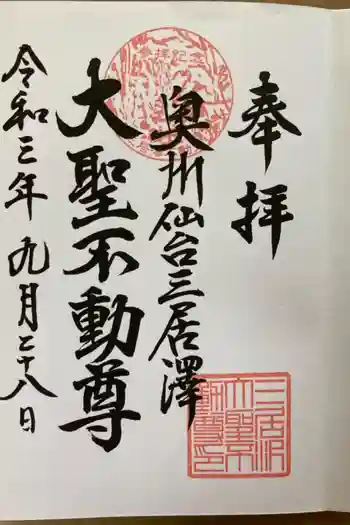 奉拝
奥州仙台三居澤
大聖不動尊
令和三年九月二十八日
三居沢
大聖不
動尊印